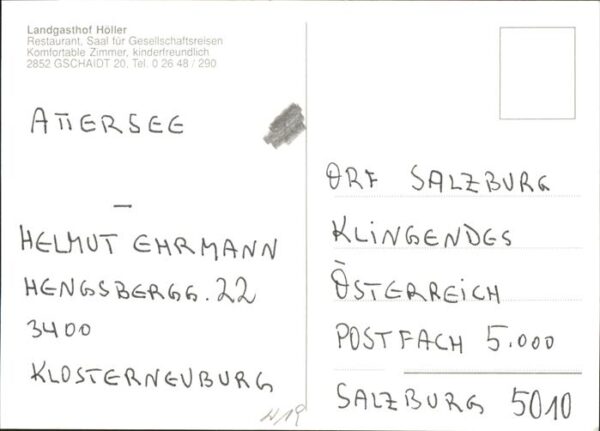 Landgasthof Höller
Restaurant, Saal für Gesellschaftsreisen
Komfortable Zimmer, kinderfreundlich
2852 GSCHAIDT 20. Tel. 0 26 48 / 290
ATTERSEE
—
HELMUT EHRMANN
HENGSBERGG. 22
3400
KLOSTERNEUBURG
ORF SALZBURG
KLINGENDES
ÖSTERREICH
POSTFACH 5.000
SALZBURG 5010